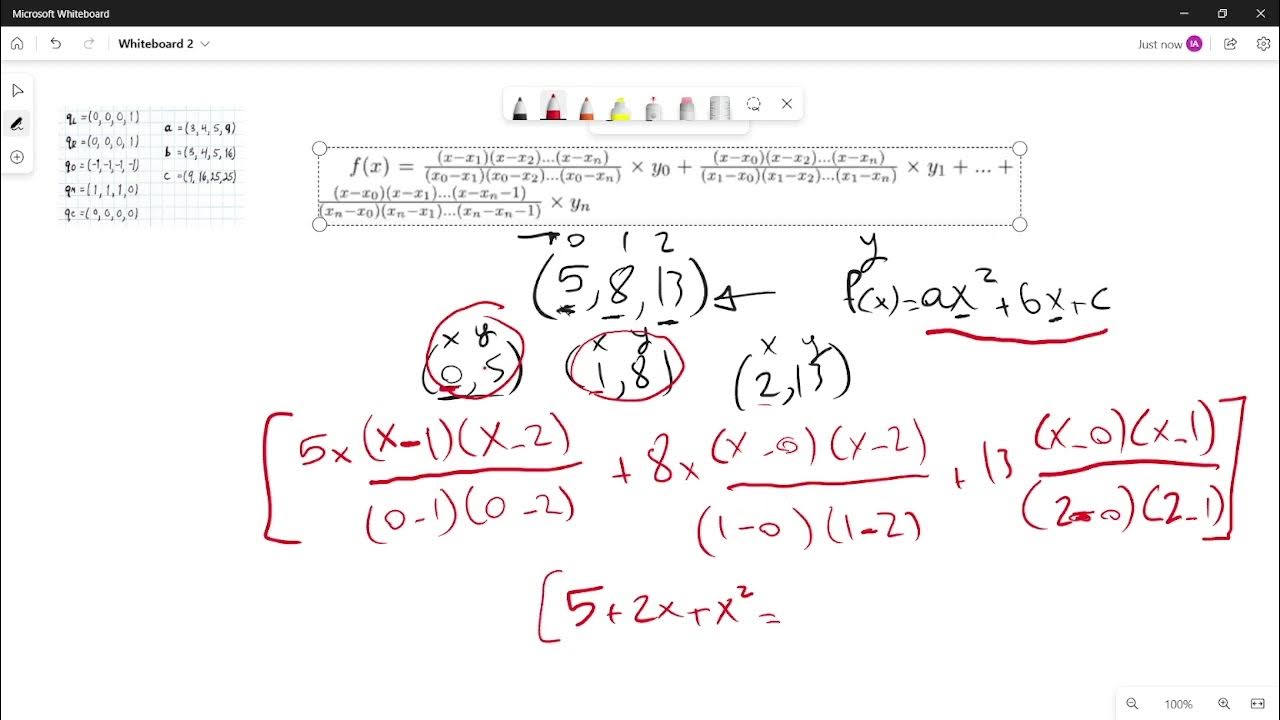 Microsoft Whiteboard
Whiteboard 2
Just now IA
qL =(0, 0, 0, 1)
qR =(0, 0, 0, 1)
qo =(-1,-1,-1,-1)
qM =(1, 1, 1, 0)
qc =(0, 0, 0, 0)
a =(3, 4, 5, 9)
b =(3, 4, 5, 16)
c =(9, 16, 25, 25)
f(x) = (x−x₁)(x−x₂)...(x−xₙ) / (x₀−x₁)(x₀−x₂)...(x₀−xₙ) × y₀ + (x−x₀)(x−x₂)...(x−xₙ) / (x₁−x₀)(x₁−x₂)...(x₁−xₙ) × y₁ + ... +
(x−x₀)(x−x₁)...(x−xₙ−1) / (xₙ−x₀)(xₙ−x₁)...(xₙ−xₙ−1) × yₙ
→ 0 1 2
(5, 8, 13) ←
y
f(x)=ax²+bx+c
x y
(0, 5)
x y
(1, 8)
x y
(2, 13)
[5x (x-1)(x-2) / (0-1)(0-2) + 8x (x-0)(x-2) / (1-0)(1-2) + 13 (x-0)(x-1) / (2-0)(2-1)]
[5+2x+x² =
100%